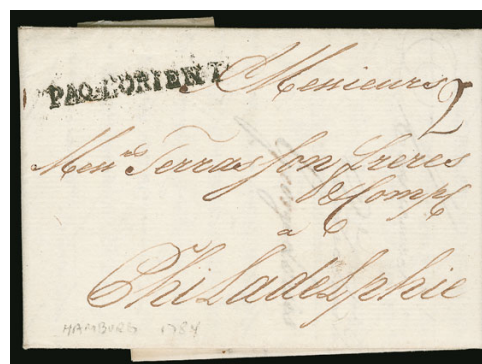 PAQ.L'ORIENT
Messieurs
Mess.rs Terrasson freres
& Comp.
a
Philadelphie
HAMBURG 1784